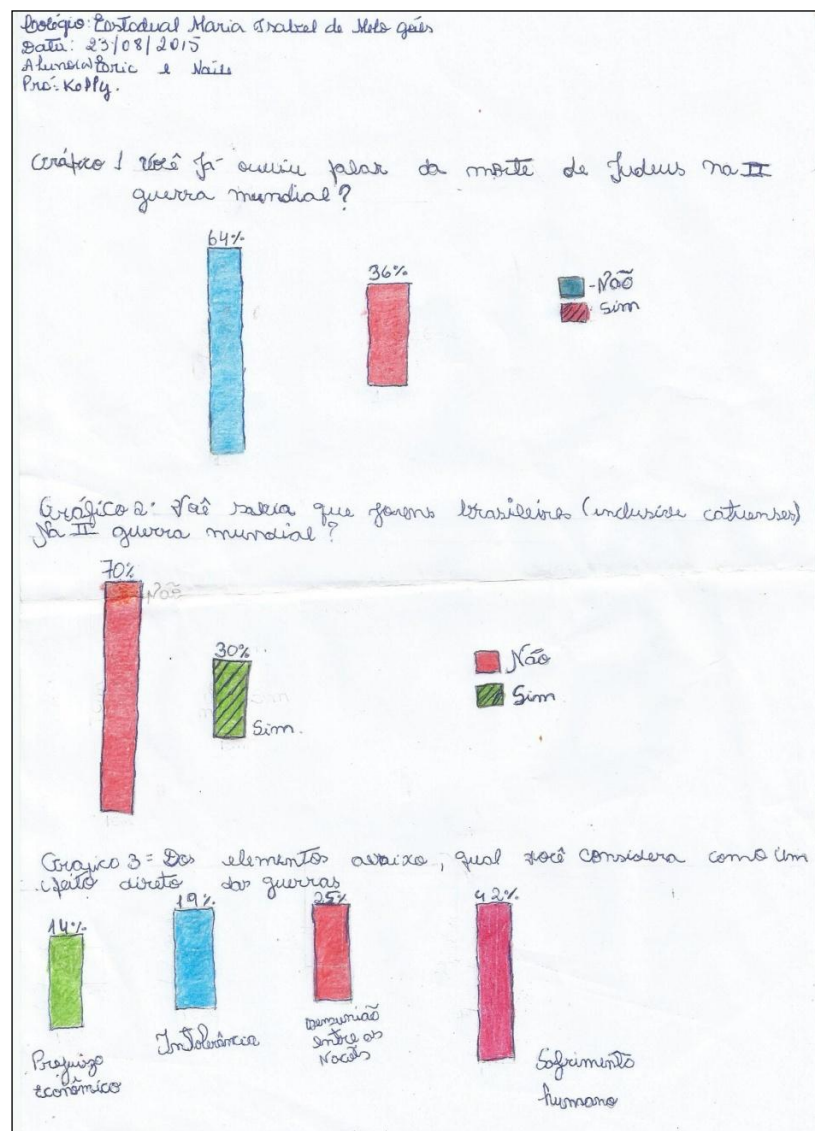 Colégio: Estadual Maria Isabel de Melo Góes
Data: 23/08/2015
Aluno(a) Eric e Naile
Pró: Kelly.
Gráfico 1 Você já ouviu falar da morte de Judeus na II
guerra mundial?
64%
36%
- Não
Sim
Gráfico 2: Você sabia que jovens brasileiros (inclusive catuenses)
Na II guerra mundial?
70%
Não
30%
Sim.
Não
Sim
Grafico 3 = Dos elementos abaixo, qual você considera como um
efeito direto das guerras
14%
19%
25%
42%
Prejuizo
econômico
Intolerância
desunião
entre as
Sofrimento
humano